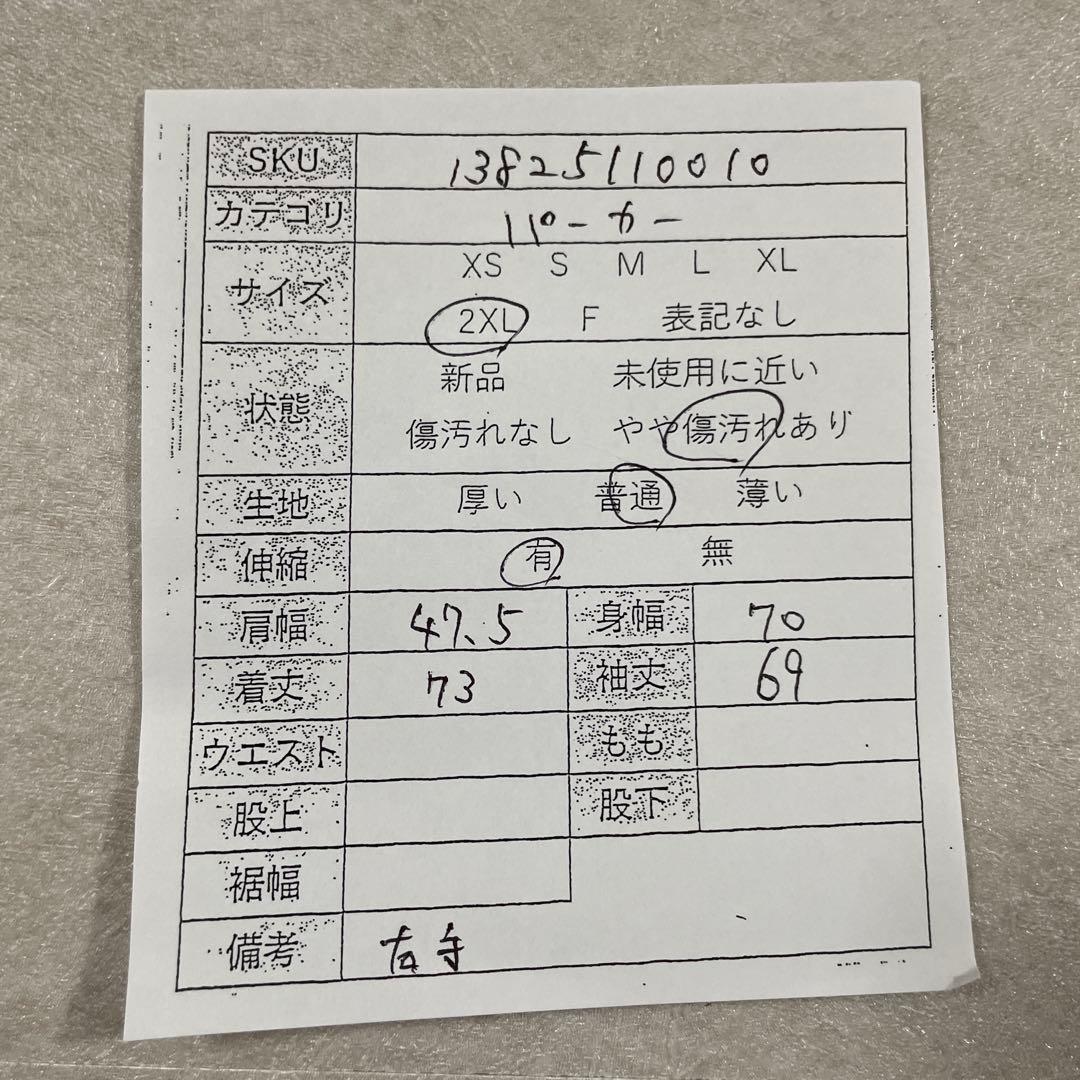 SKU 13825110010
カテゴリ パーカー
サイズ XS S M L XL
2XL F 表記なし
状態 新品 未使用に近い
傷汚れなし やや傷汚れあり
生地 厚い 普通 薄い
伸縮 有 無
肩幅 47.5 身幅 70
着丈 73 袖丈 69
ウエスト もも
股上 股下
裾幅
備考